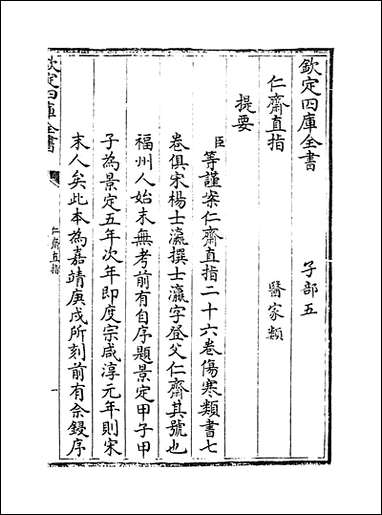 欽定四庫全書　子部五
仁齋直指　醫家類
提要
臣等謹案仁齋直指二十六卷傷寒類書七
卷俱宋楊士瀛撰士瀛字登父仁齋其號也
福州人始末無考前有自序題景定甲子甲
子為景定五年次年即度宗咸淳元年則宋
末人矣此本為嘉靖庚戌所刻前有佘鋟序
欽定四庫全書
仁齋直指
一